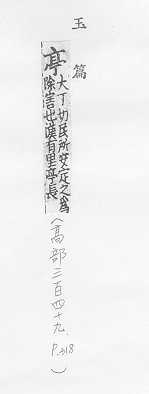 玉篇
亭大丁切民所安定之為
除害也漢有里亭長
(高部三百四十九、P.318)